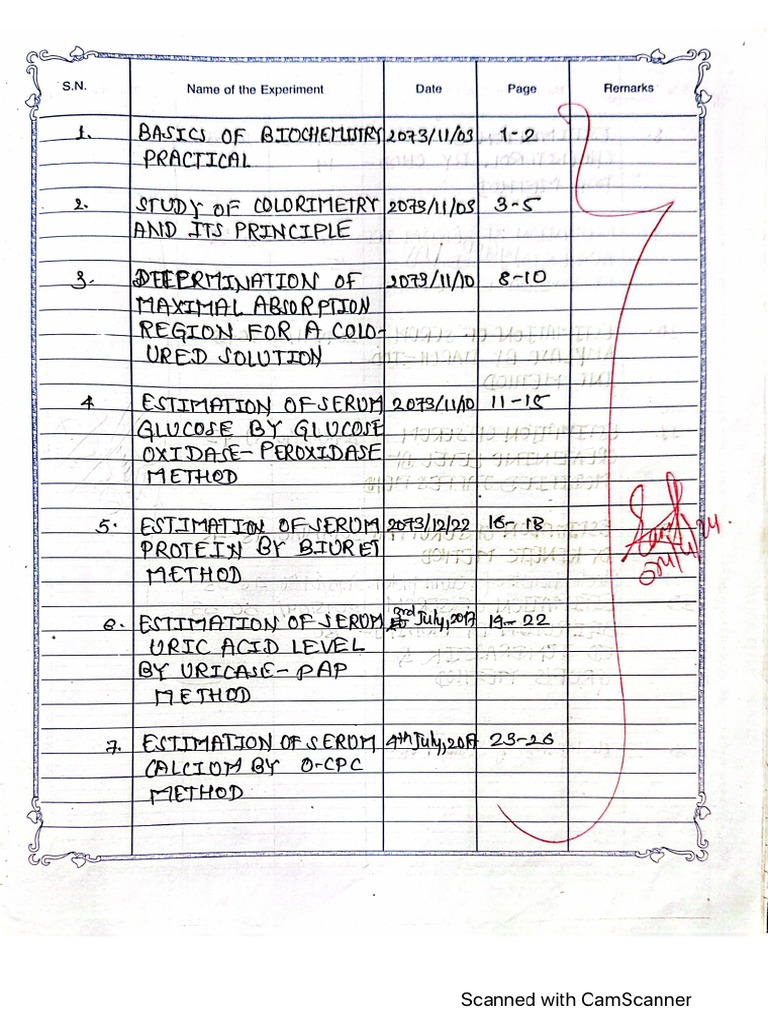 S.N. Name of the Experiment Date Page Remarks
1. BASICS OF BIOCHEMISTRY 2073/11/03 1-2
PRACTICAL
2. STUDY OF COLORIMETRY 2073/11/03 3-5
AND ITS PRINCIPLE
3. DETERMINATION OF 2073/11/10 8-10
MAXIMAL ABSORPTION
REGION FOR A COLO-
URED SOLUTION
4 ESTIMATION OF SERUM 2073/11/10 11-15
GLUCOSE BY GLUCOSE
OXIDASE-PEROXIDASE
METHOD
5. ESTIMATION OF SERUM 2073/12/22 16-18
PROTEIN BY BIURET
METHOD
6. ESTIMATION OF SERUM 3rd July, 2017 19-22
URIC ACID LEVEL
BY URICASE-PAP
METHOD
7. ESTIMATION OF SERUM 4th July, 2017 23-26
CALCIUM BY O-CPC
METHOD
Scanned with CamScanner